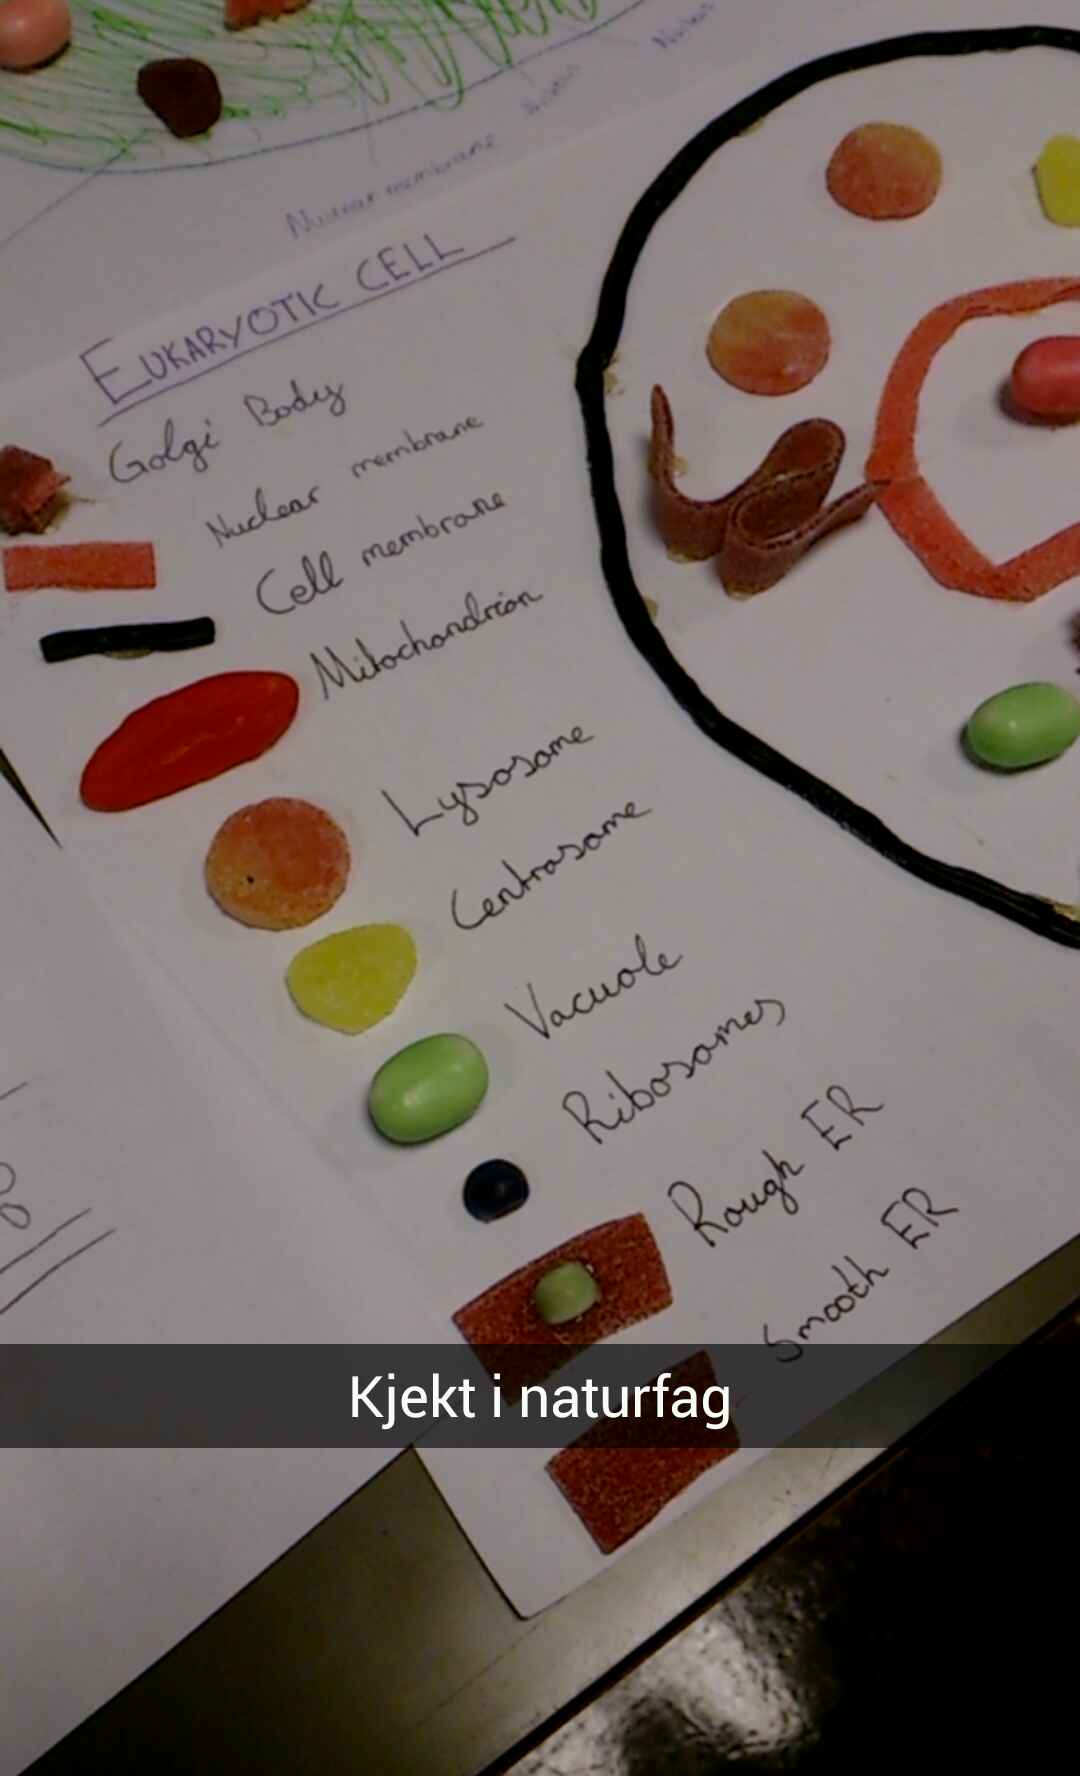 Nucleus
Nuclear membrane
EUKARYOTIC CELL
Golgi Body
Nuclear membrane
Cell membrane
Mitochondrion
Lysosome
Centrosome
Vacuole
Ribosomes
Rough ER
Smooth ER
Kjekt i naturfag